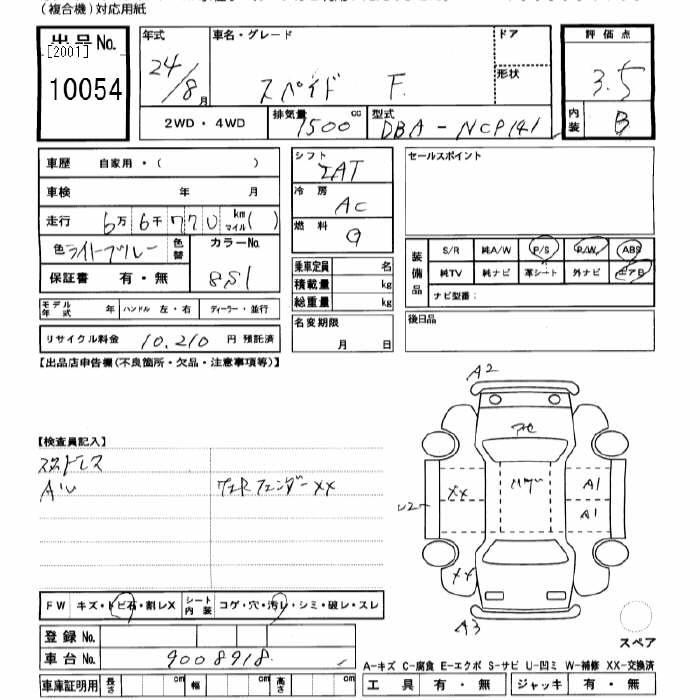 (複合機)対応用紙
出品No.
[2001]
10054
年式 車名・グレード ドア 評価点
24/8月 スペイド F 形状 3.5
2WD・4WD 排気量 1500cc 型式 DBA-NCP141 内装 B
車歴 自家用・( )
車検 年 月
走行 6万6千770 km マイル( )
色 ライトブルー 色替 カラーNo. 8S1
保証書 有・無
モデル年式 年 ハンドル 左・右 ディーラー・並行
リサイクル料金 10,210円 預託済
シフト IAT
冷房 AC
燃料 G
乗車定員 名
積載量 kg
総重量 kg
名変期限 月 日
セールスポイント
装備品 S/R 純A/W P/S P/W ABS
純TV 純ナビ 革シート 外ナビ エアB
ナビ型番:
後日品
【出品店申告欄(不良箇所・欠品・注意事項等)】
【検査員記入】
スタッドレス
フェンダーXX
A2
XX
A1
A1
XX
A3
スペア
FW キズ・トビ石・割レX シート内装 コゲ・穴・汚レ・シミ・破レ・スレ
登録No.
車台No. 9008918
車庫証明用 長さ cm 幅 cm 高さ cm
A-キズ C-腐食 E-エクボ S-サビ U-凹ミ W-補修 XX-交換済
工具 有・無 ジャッキ 有・無